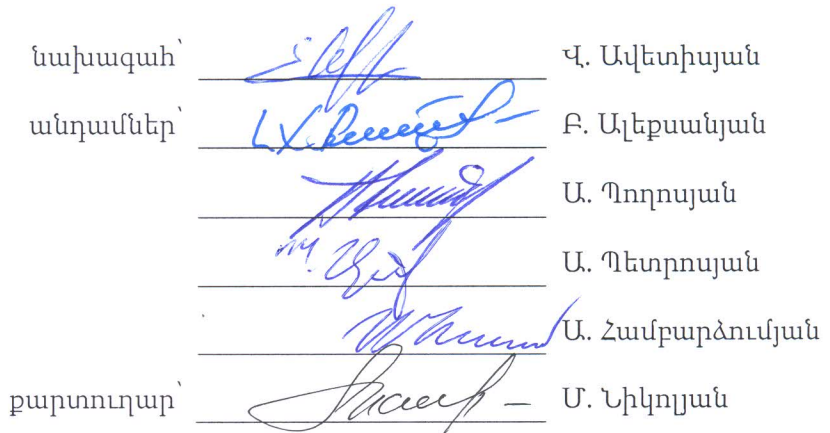 նախագահ՝ Վ. Ավետիսյան
անդամներ՝ Բ. Ալեքսանյան
Ա. Պողոսյան
Ա. Պետրոսյան
Ա. Համբարձումյան
քարտուղար՝ Մ. Նիկոլյան